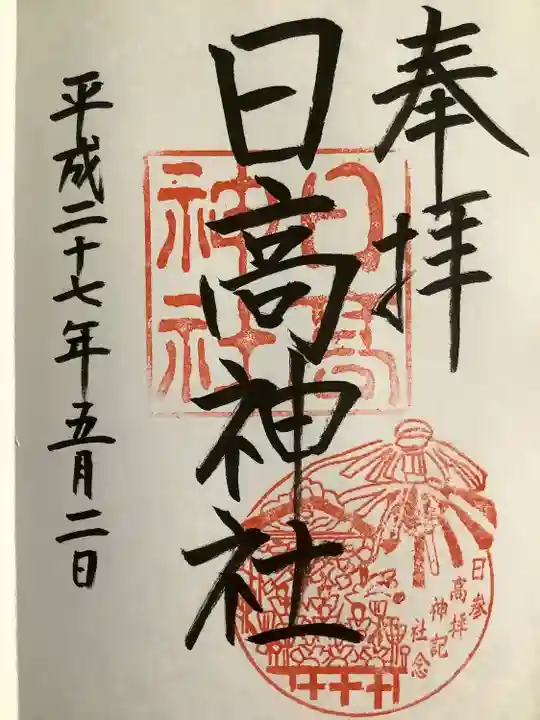 奉拝
日高神社
平成二十七年五月二日
日高神社
参拝記念
日高神社